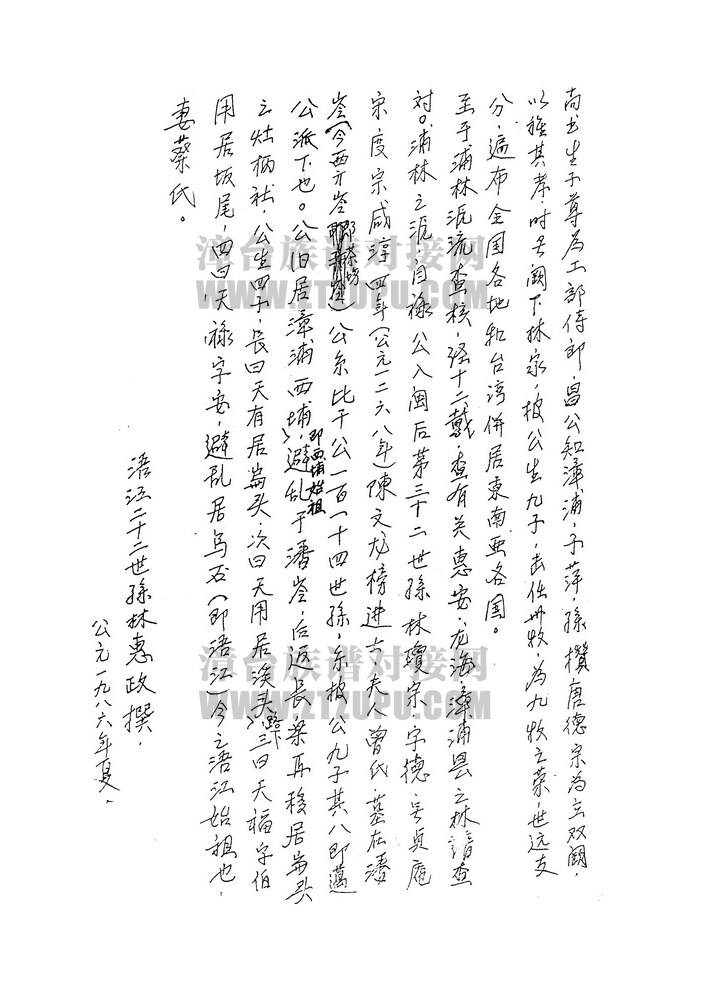 尚书生子尊为工部侍郎，昌公知漳浦，子萍，孙攒唐德宗为立双阙，
以旌其孝，时号阙下林家，披公生九子，击仕州牧，为九牧之荣，世远支
分，遍布全国各地和台湾併居东南亚各国。
至于浦林派流查核，强十二戴，查有关惠安、龙海、漳浦昙之林谱查
对。浦林之派，自禄公入闽后第三十二世孫林瓊宗，字德，号贞庵
宋度宗咸淳四年（公元一二六八年）陳文龙榜进士，夫人曾氏，墓在潘
岺（今西方岺郎茶坊）公系比干公一百一十四世孫，系披公九子其八即邁
公派下也。公旧居漳浦西埔，即西埔始祖避乱于潘岺，后返長桥再移居崙头
之灶柄社，公生四子，長曰天有居崙头，次曰天用居溪头路下，三曰天福字伯
用居坂尾，四曰天禄字安，避乱居乌石（即浯江）今之浯江始祖也，
妻蔡氏。
浯江二十二世孫林惠政撰，
公元一九八六年夏，
漳台族谱对接网
WWW.ZTZUPU.COM
漳台族谱对接网
WWW.ZTZUPU.COM